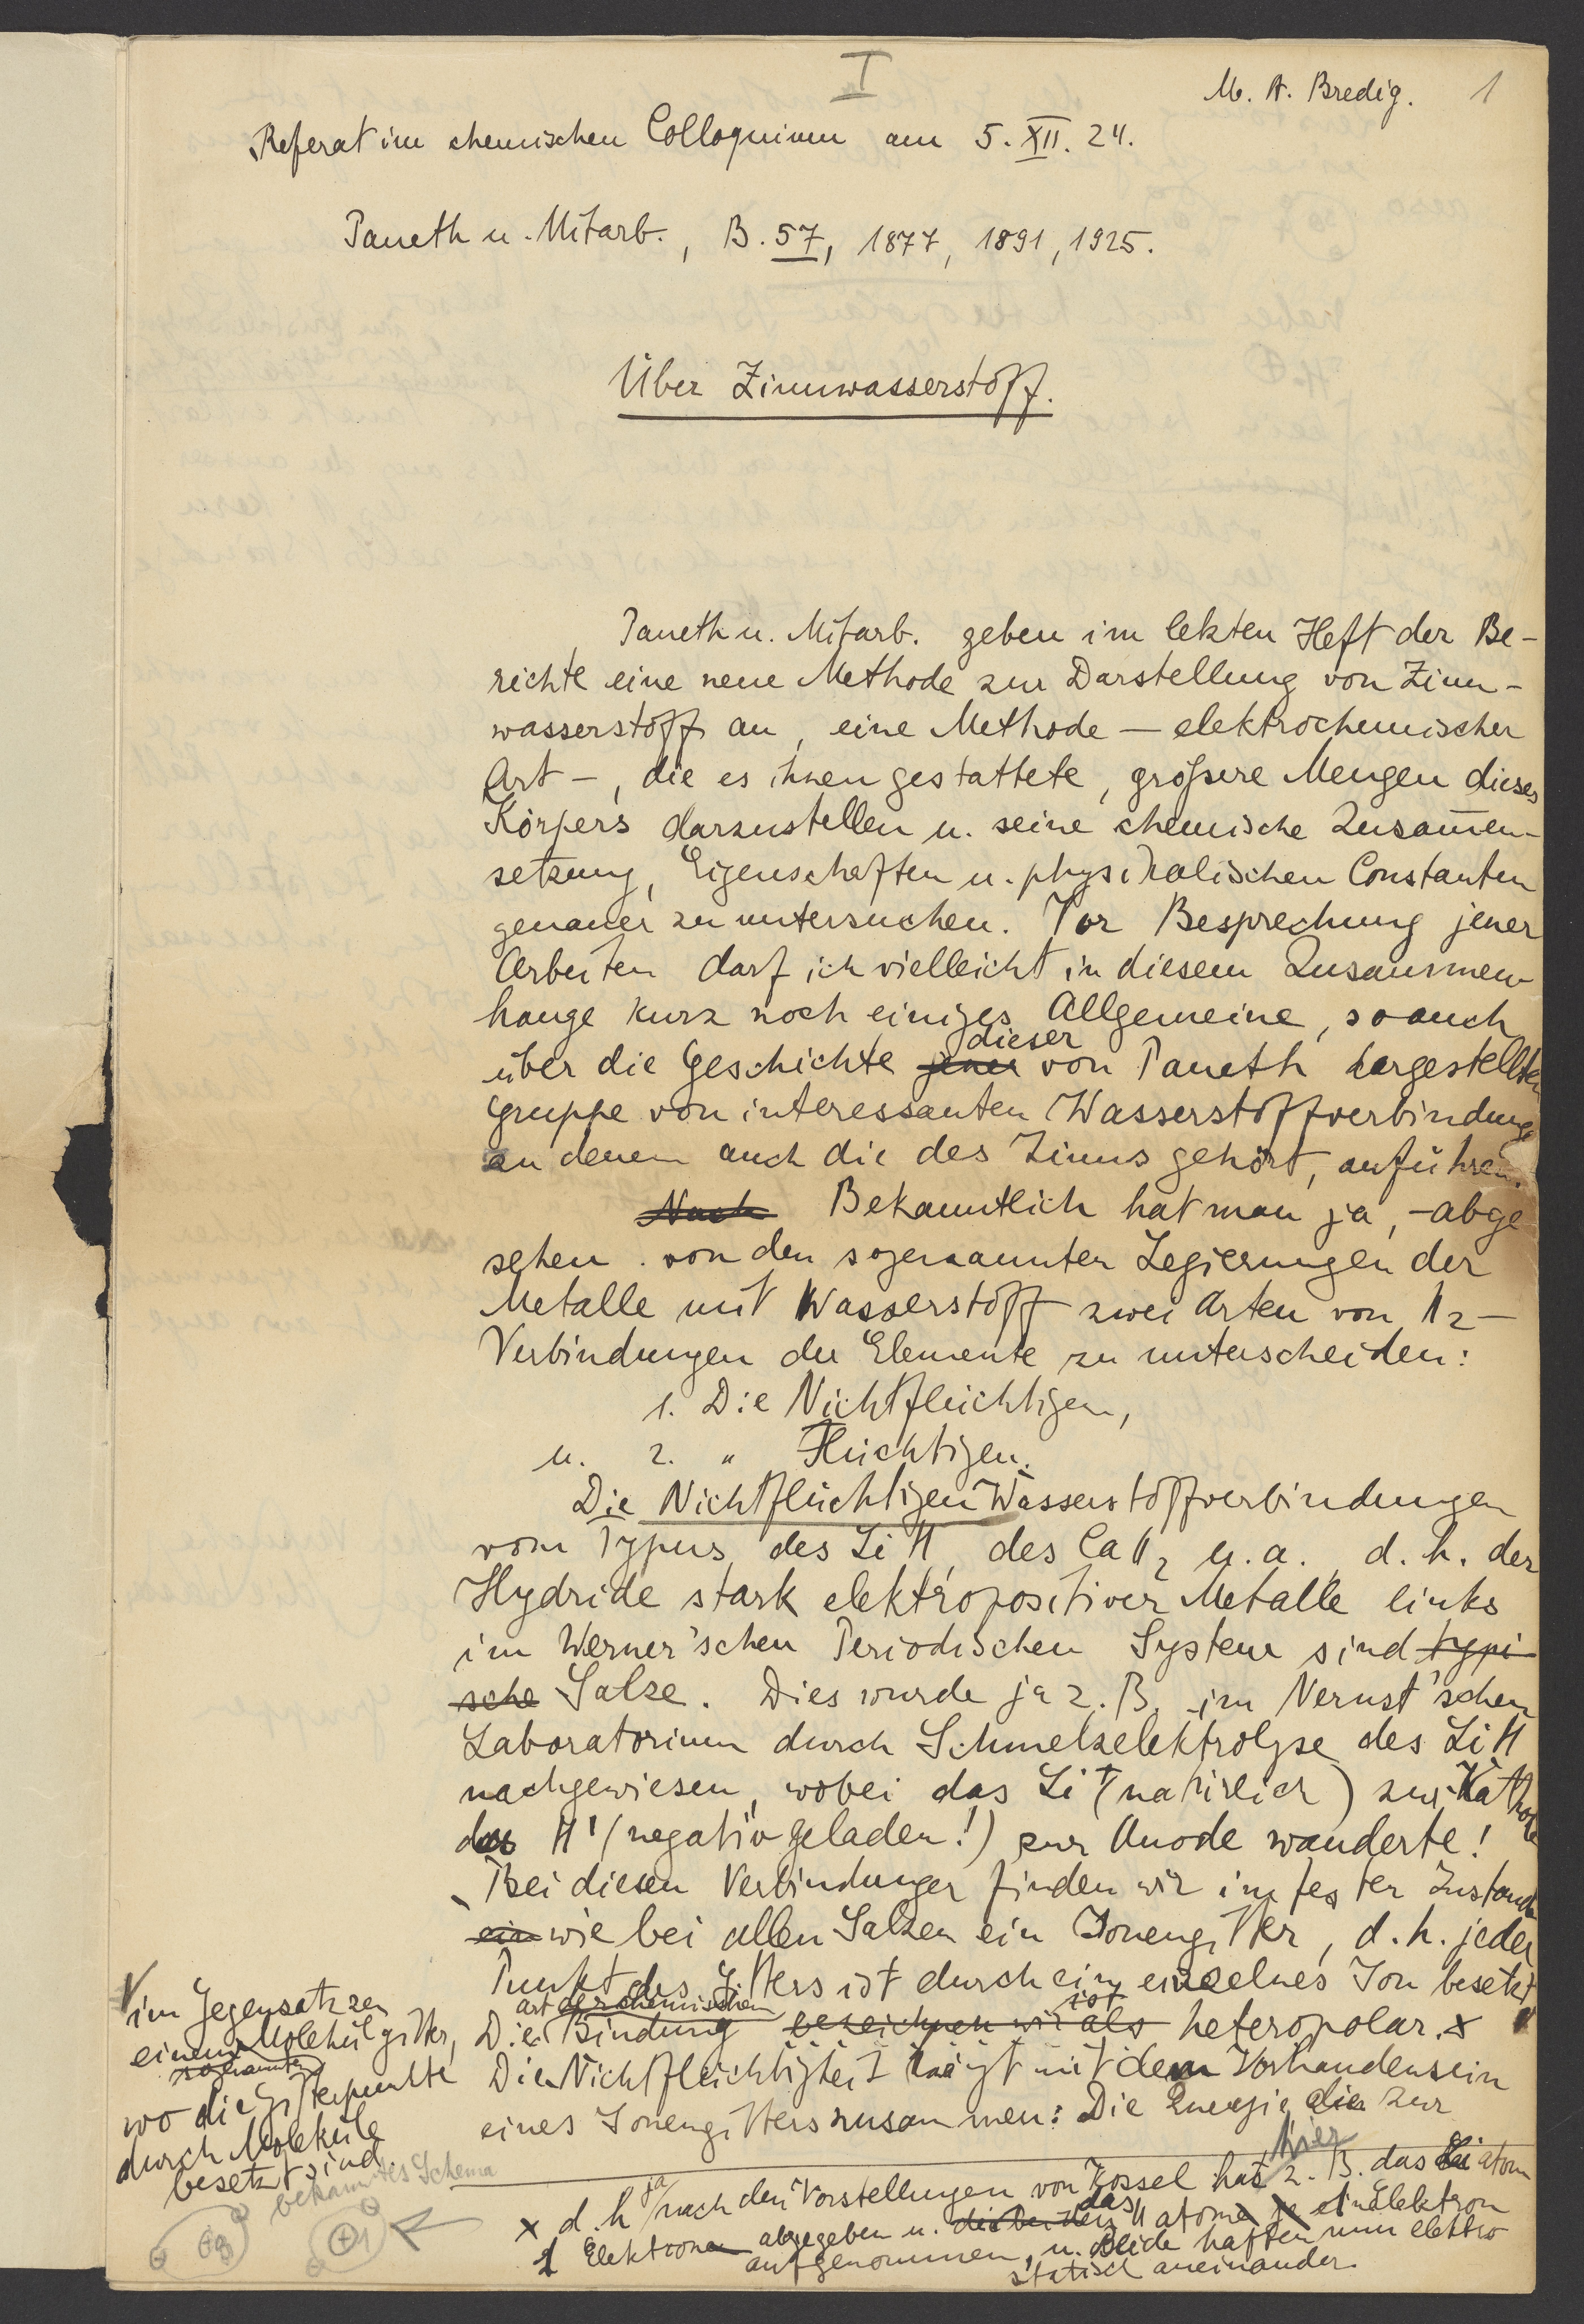 I
M. A. Bredig. 1
Referat im chemischen Colloquium am 5. XII. 24.
Paneth u. Mitarb., B. 57, 1877, 1891, 1925.
Über Zinnwasserstoff.
Paneth u. Mitarb. geben im letzten Heft der Be-
richte eine neue Methode zur Darstellung von Zinn-
wasserstoff an, eine Methode — elektrochemischer
Art —, die es ihnen gestattete, größere Mengen dieses
Körpers darzustellen u. seine chemische Zusam̅en-
setzung, Eigenschaften u. physikalischen Constanten
genauer zu untersuchen. Vor Besprechung jener
Arbeiten darf ich vielleicht in diesem Zusammen-
hange kurz noch einiges Allgemeine, so auch
dieser
über die Geschichte jener von Paneth hergestellten
Gruppe von interessanten Wasserstoffverbindung
zu denen auch die des Zinns gehört, anführen.
Nach Bekanntlich hat man ja, - abge
sehen von den sogenannten Legierungen der
Metalle mit Wasserstoff zwei Arten von H2-
Verbindungen der Elemente zu unterscheiden:
1. Die Nichtflüchtigen,
u. 2. " Flüchtigen.
Die Nichtflüchtigen Wasserstoffverbindungen
vom Typus des LiH, des CaH2 u. a. d. h. der
Hydride stark elektropositiver Metalle links
im Werner'schen Periodischen System sind typi-
sche Salze. Dies wurde ja z. B. im Nernst'schen
Laboratorium durch Schmelzelektrolyse des LiH
nachgewiesen, wobei das Li+ (natürlich) zur Kathode
das H' (negativ geladen!) zur Anode wanderte!
Bei diesen Verbindungen finden wir im festen Zustande
ein wie bei allen Salzen ein Ionengitter, d. h. jeder
Punkt des Gitters ist durch ein einzelnes Ion besetzt
art der chemischen ist
Die Bindung bezeichnen wir als heteropolar. x
Die Nichtflüchtigkeit hängt mit dem Vorhandensein
eines Ionengitters zusammen: Die Energie die zur
im Gegensatz zu
einem Molekülgitter,
sogenannten
wo die Gitterpunkte
durch Moleküle
besetzt sind
bekanntes Schema
ja hier
x d. h. nach den Vorstellungen von Kossel hat z. B. das Li atom
das
1 Elektronen abgegeben u. H atome je ein Elektron
aufgenommen, u. beide haften nun elektro
statisch aneinander.